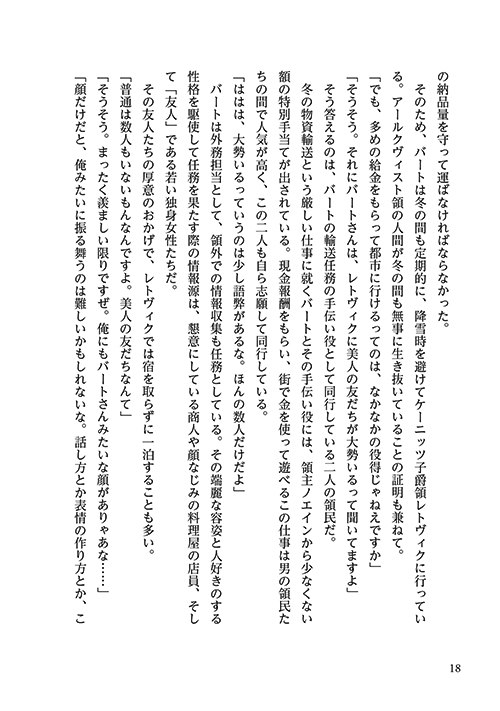 の納品量を守って運ばなければならなかった。
　そのため、バートは冬の間も定期的に、降雪時を避けてケーニッツ子爵領レトヴィクに行ってい
る。アールクヴィスト領の人間が冬の間も無事に生き抜いていることの証明も兼ねて。
「でも、多めの給金をもらって都市に行けるってのは、なかなかの役得じゃねえですか」
「そうそう。それにバートさんは、レトヴィクに美人の友だちが大勢いるって聞いてますよ」
　そう答えるのは、バートの輸送任務の手伝い役として同行している二人の領民だ。
　冬の物資輸送という厳しい仕事に就くバートとその手伝い役には、領主ノエインから少なくない
額の特別手当てが出されている。現金報酬をもらい、街で金を使って遊べるこの仕事は男の領民た
ちの間で人気が高く、この二人も自ら志願して同行している。
「ははは、大勢いるっていうのは少し語弊があるな。ほんの数人だけだよ」
　バートは外務担当として、領外での情報収集も任務としている。その端麗な容姿と人好きのする
性格を駆使して任務を果たす際の情報源は、懇意にしている商人や顔なじみの料理屋の店員、そし
て「友人」である若い独身女性たちだ。
　その友人たちの厚意のおかげで、レトヴィクでは宿を取らずに一泊することも多い。
「普通は数人もいないもんなんですよ。美人の友だちなんて」
「そうそう。まったく羨ましい限りですぜ。俺にもバートさんみたいな顔がありゃあな……」
「顔だけだと、俺みたいに振る舞うのは難しいかもしれないな。話し方とか表情の作り方とか、こ
18